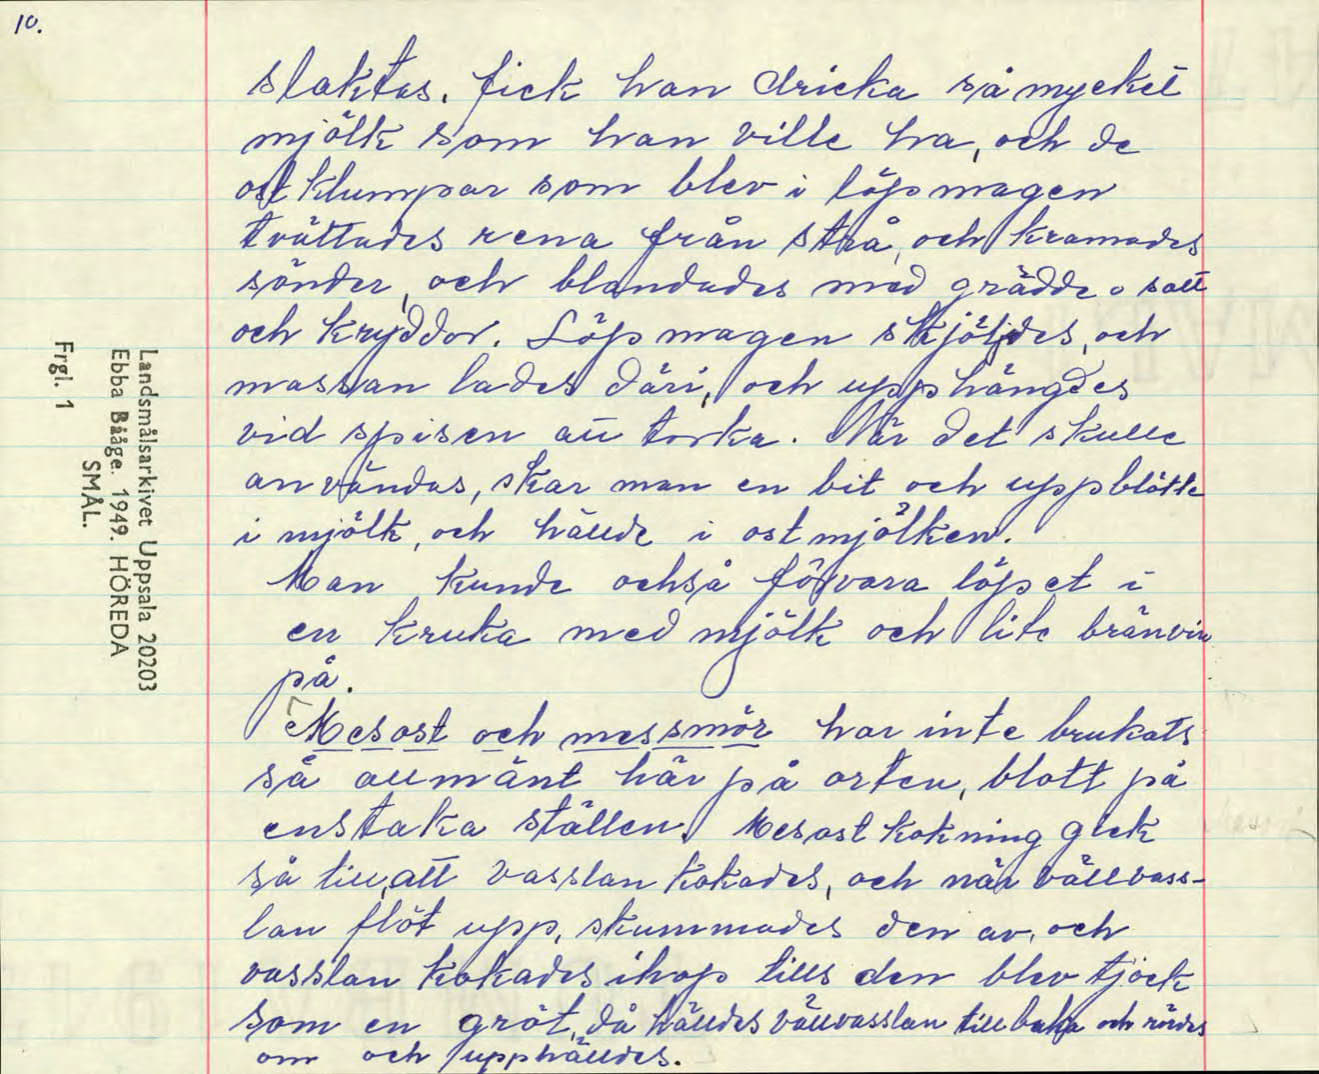 10.
slaktas. fick han dricka så mycket
mjölk som han ville ha, och de
ost klumpar som blev i löpmagen
tvättades rena från strå, och kramades
sönder, och blandades med grädde o salt
och kryddor. Löpmagen sköljdes, och
massan lades däri, och upphängdes
vid spisen att torka. När det skulle
användas, skar man en bit och uppblötte
i mjölk, och hällde i ostmjölken.
Man kunde också förvara löpet i
en kruka med mjölk och lite bränvin
på.
Mesost och messmör har inte brukats
så allmänt här på orten, blott på
enstaka ställen. Mesost kokning gick
så till, att vasslan kokades, och när vällvass-
lan flöt upp, skummades den av, och
vasslan kokades ihop tills den blev tjock
som en gröt, då hälldes vällvasslan tillbaka och rördes
om och upphälldes.
Landsmålsarkivet Uppsala 20203
Ebba Bååge. 1949. HÖREDA
SMÅL.
Frgl. 1